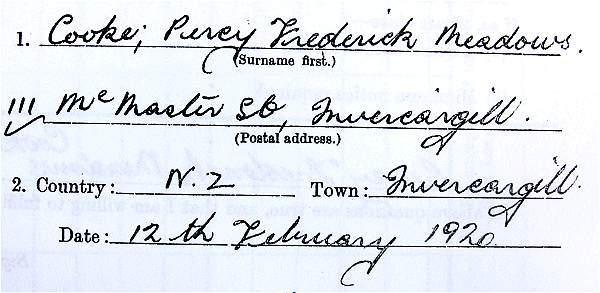 1. Cooke; Percy Frederick Meadows.
(Surname first.)
111 McMaster St, Invercargill.
(Postal address.)
2. Country: N.Z Town: Invercargill.
Date: 12th February 1920